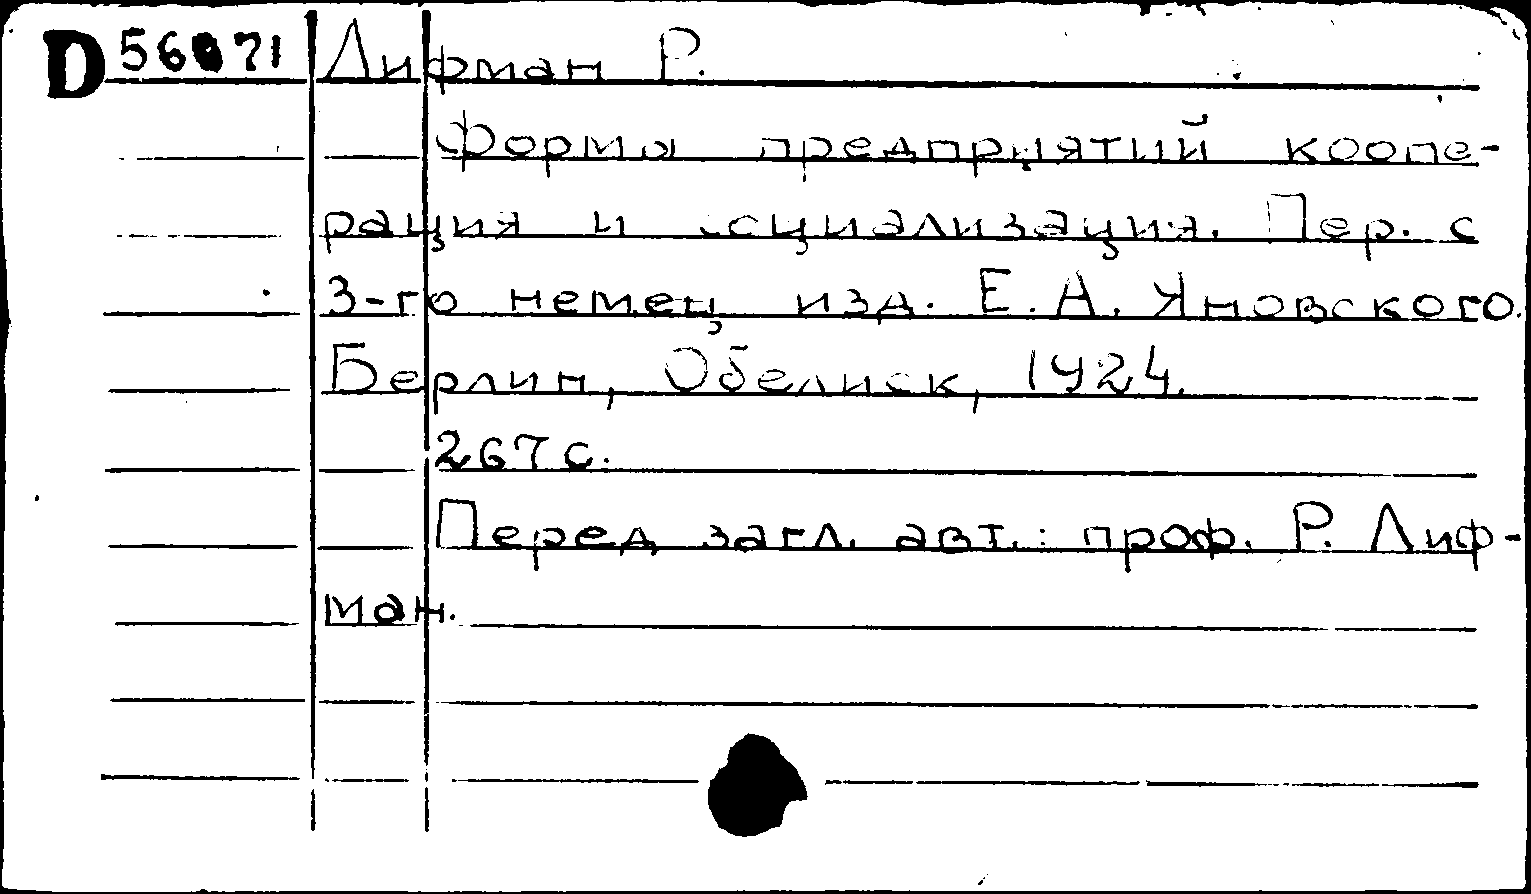 D 56071 Лифман Р.
Формы предприятий коопе-
рация и социализация. Пер. с
3-го немец. изд. Е. А. Яновского.
Берлин, Обелиск, 1924.
267 с.
Перед загл. авт.: проф. Р. Лиф-
ман.